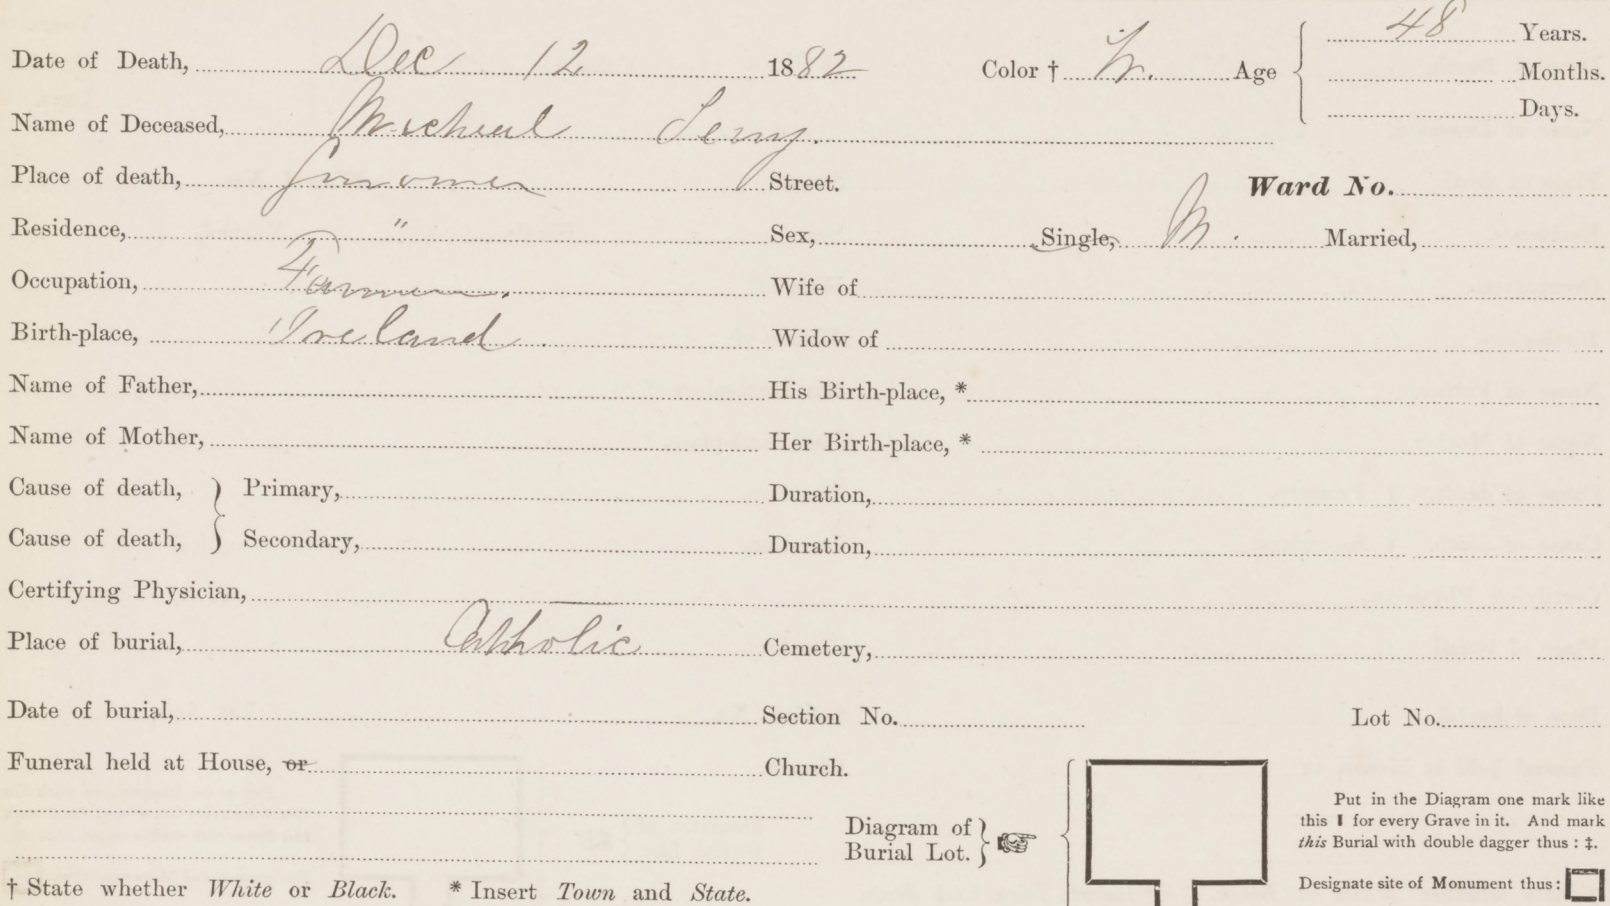 Date of Death, Dec 12 1882 Color † W. Age 48 Years.
Months.
Days.
Name of Deceased, Micheal
Place of death, Street. Ward No.
Residence, " Sex, Single, M. Married,
Occupation, Farmer. Wife of
Birth-place, Ireland. Widow of
Name of Father, His Birth-place, *
Name of Mother, Her Birth-place, *
Cause of death, } Primary, Duration,
Cause of death, } Secondary, Duration,
Certifying Physician,
Place of burial, Catholic Cemetery,
Date of burial, Section No. Lot No.
Funeral held at House, or Church.
Diagram of
Burial Lot.
Put in the Diagram one mark like
this ❙ for every Grave in it. And mark
this Burial with double dagger thus : ‡.
Designate site of Monument thus :
† State whether White or Black. * Insert Town and State.